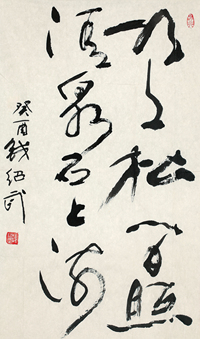 明月松间照
清泉石上流
癸酉钱绍武